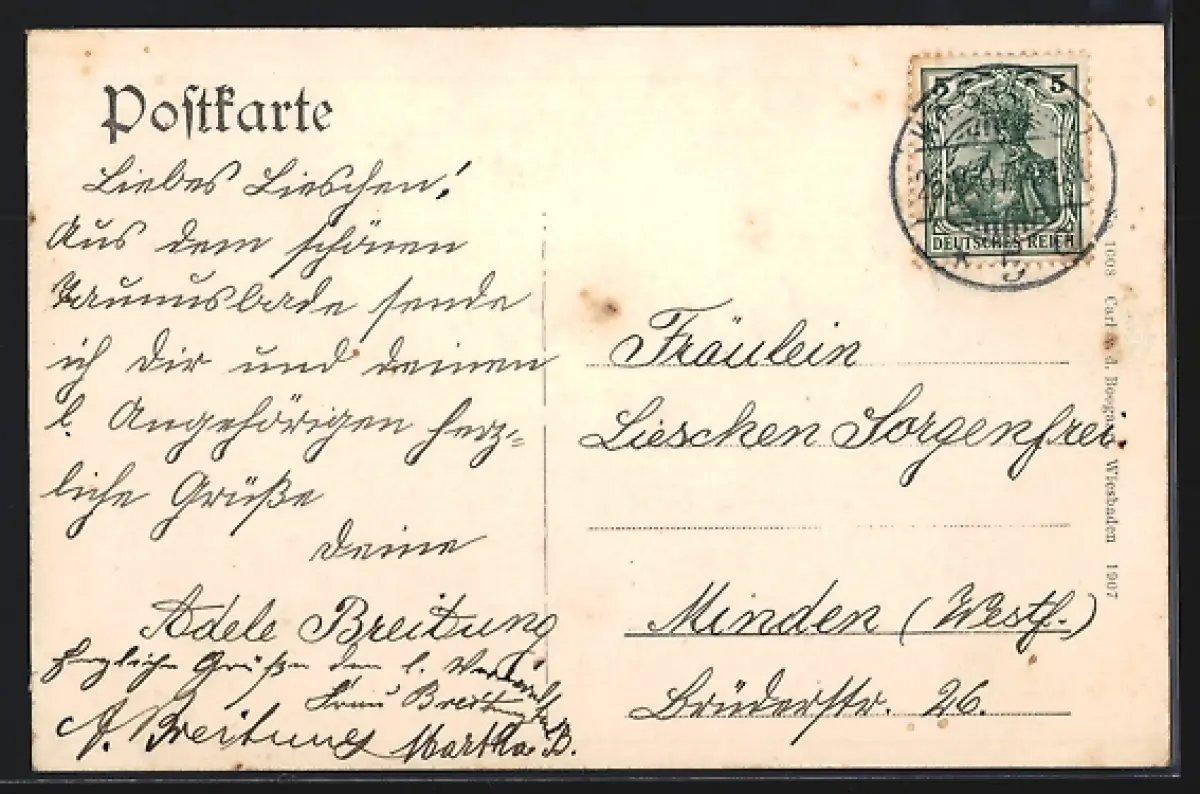 Postkarte
Liebes Lieschen!
Aus dem schönen
Taunusbade sende
ich Dir und deinen
l. Angehörigen herz-
liche Grüße
Deine
Adele Breitung
Herzliche Grüße den l.
Frau Breitung
A. Breitung Martha B.
5 5
DEUTSCHES REICH
Fräulein
Lieschen Sorgenfrei.
Minden (Westf.)
Brüderstr. 26.
No. 1008 Carl v. d. Boogaart, Wiesbaden 1907